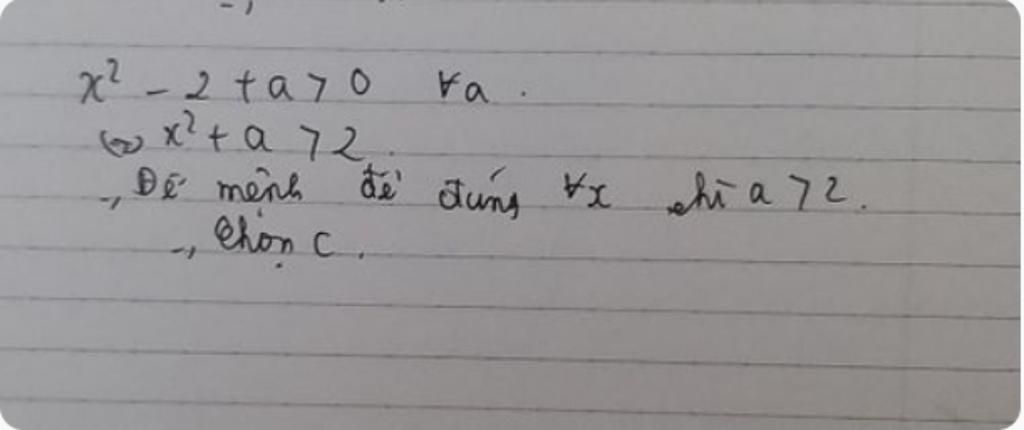 x² - 2 + a > 0 ∀a.
⇔ x² + a > 2.
→ Để mệnh đề đúng ∀x thì a > 2.
→ Chọn C.